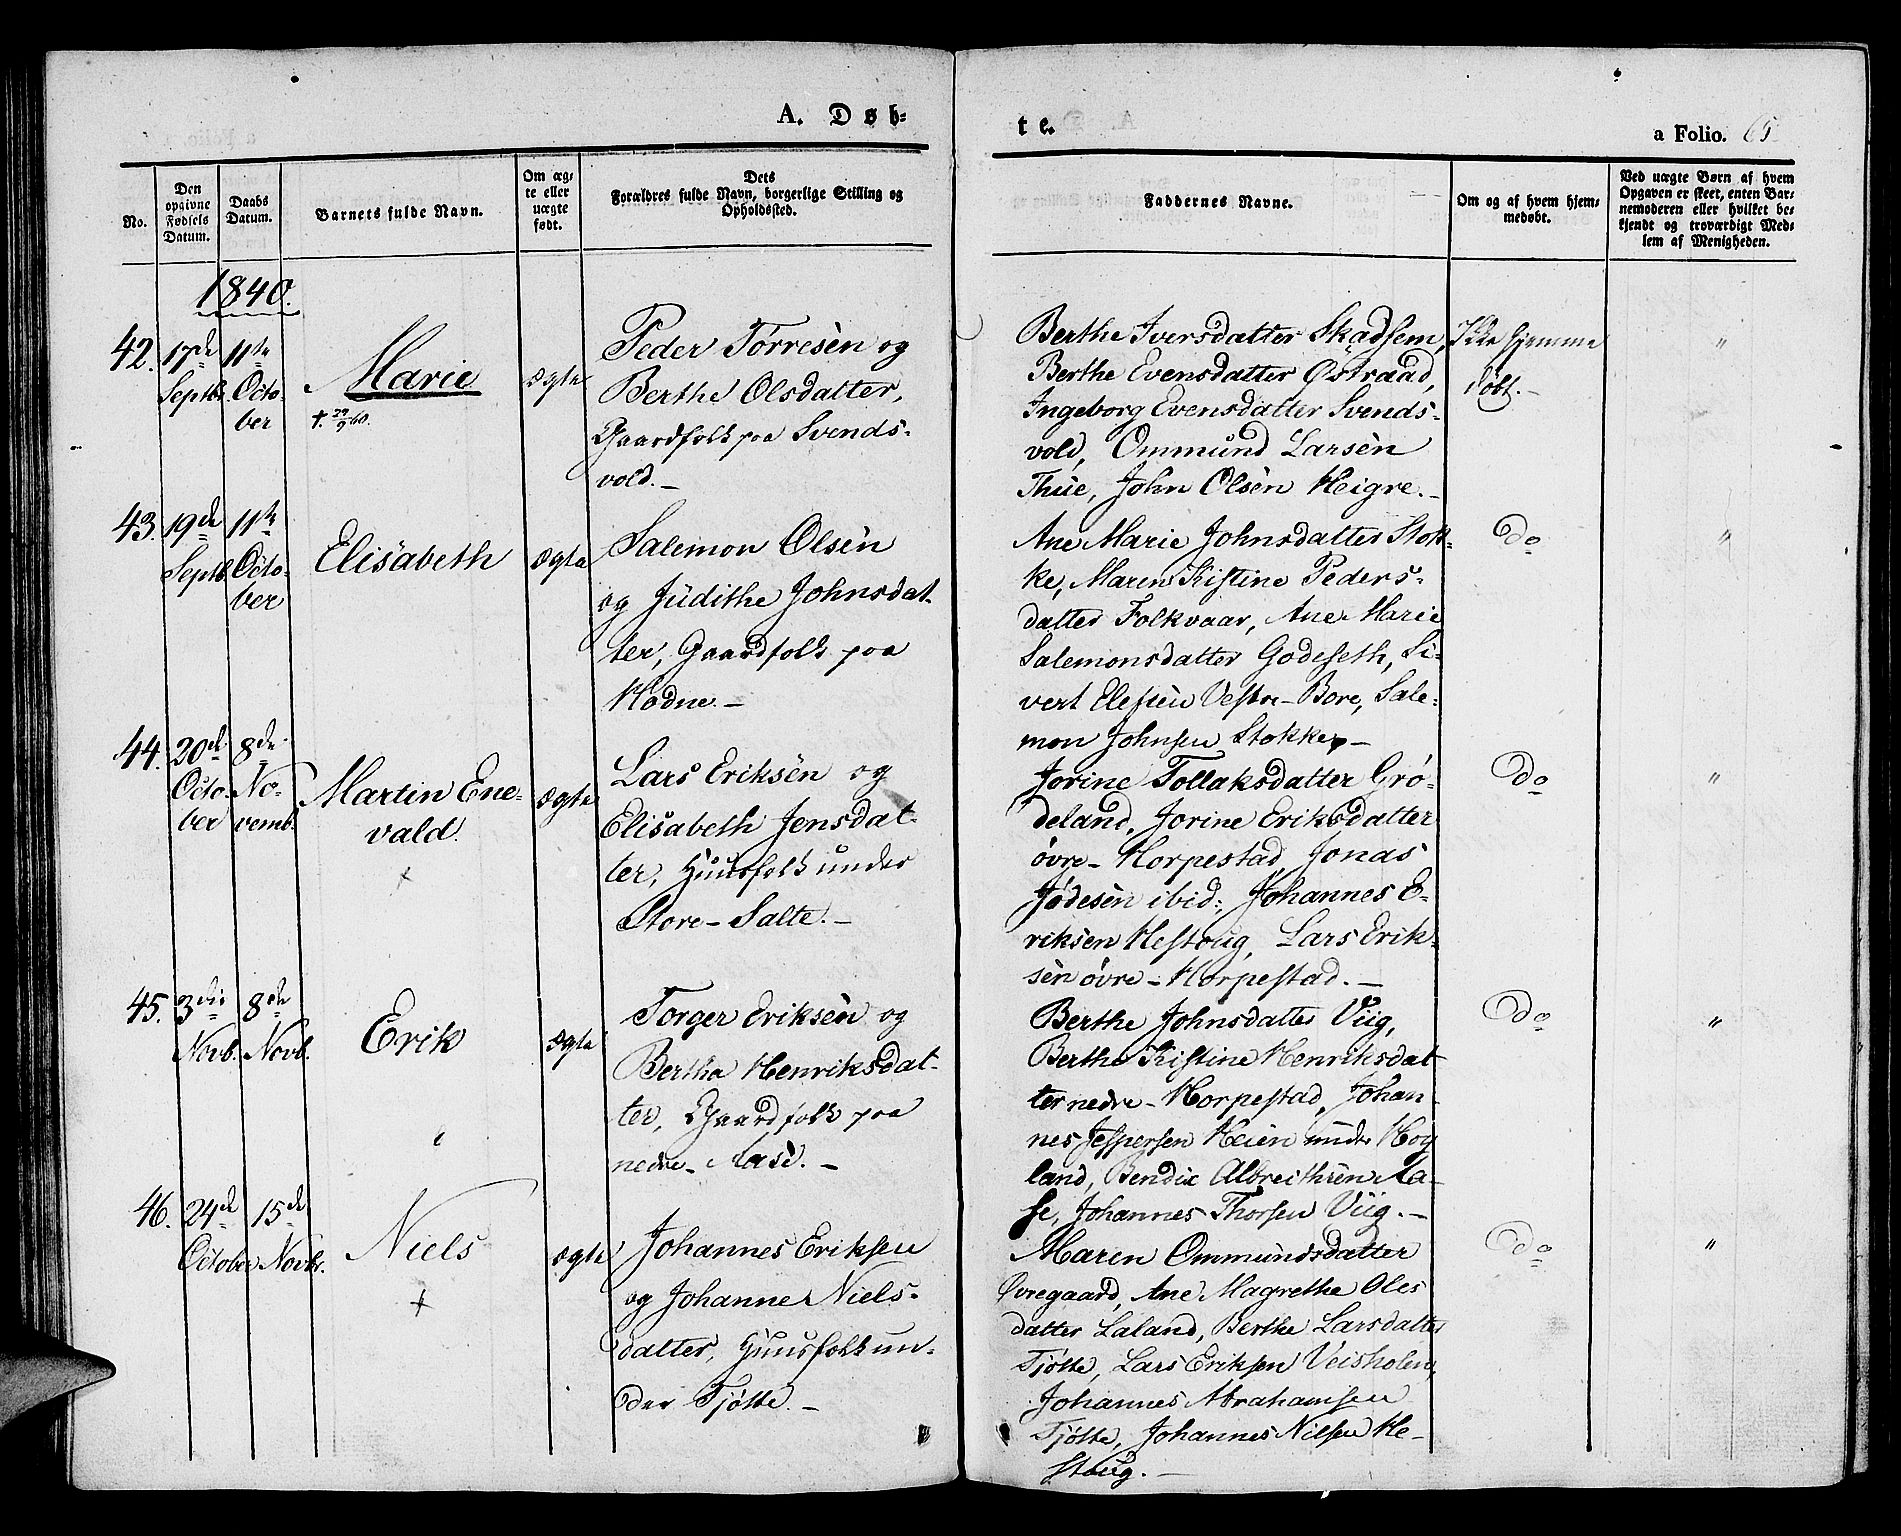 A. Døb-
te.
a Folio. 65
No.
Den
opgivne
Fødsels
Datum.
Daabs
Datum.
Barnets fulde Navn.
Om æg-
te eller
uægte
født.
Dets
Forældres fulde Navn, borgerlige Stilling og
Opholdssted.
Faddernes Navne.
Om og af hvem hjem-
medøbt.
Ved uægte Børn af hvem
Opgaven er skeet, enten Bar-
nemoderen eller hvilket be-
kjendt og troværdigt Med-
lem af Menigheden.
1840.
42.
17de
Septbr.
11te
Octo-
ber
Marie
†. 29/9 60.
ægte
Peder Torresen og
Berthe Olsdatter,
Gaardfolk paa Svends-
vold. -
Berthe Iversdatter Skadsem,
Berthe Evensdatter Østraad,
Ingeborg Evensdatter Svends-
vold, Ommund Larsen
Thue, John Olsen Heigre. -
Ikke hjemme
døbt. -
"
43.
19de
Septb.
11te
Octo-
ber
Elisabeth
ægte
Salemon Olsen
og Judithe Johnsdat-
ter, Gaardfolk paa
Hodne. -
Ane Marie Johnsdatter Stok-
ke, Maren Kistine Peders-
datter Folkvaar, Ane Marie
Salemonsdatter Godeseth, Si-
vert Elefsen Vestre-Bore, Sale-
mon Johnsen Stokke, -
Do
"
44.
20de
Octo-
ber
8de
No-
vemb.
Martin Ene-
vald.
+
ægte
Lars Eriksen og
Elisabeth Jensdat-
ter, Huusfolk under
Store-Salte. -
Jorine Tollaksdatter Grø-
deland, Jorine Eriksdatter
øvre-Horpestad, Jonas
Jødesen ibid:, Johannes E-
riksen Hestoug, Lars Erik-
sen øvre-Horpestad. -
Do
"
45.
3die
Novb.
8de
Novb.
Erik
ægte
Torger Eriksen og
Bertha Henriksdat-
ter, Gaardfolk paa
nedre-Aase. -
Berthe Johnsdatter Viig,
Berthe Kistine Henriksdat-
ter nedre-Horpestad, Johan-
nes Jespersen Heien under Hog
land, Bendix Albreithsen Aa-
se, Johannes Thorsen Viig. -
Do
"
46.
24de
October
15de
Novbr.
Niels
+
ægte
Johannes Eriksen
og Johanne Niels-
datter, Huusfolk un-
der Tjøtte. -
Maren Ommundsdatter
Øvregaard, Ane Magrethe Oles
datter Laland, Berthe Larsdatter
Tjøtte, Lars Eriksen Veisholen,
Johannes Abrahamsen
Tjøtte, Johannes Nilsen He-
stoug. -
Do
"